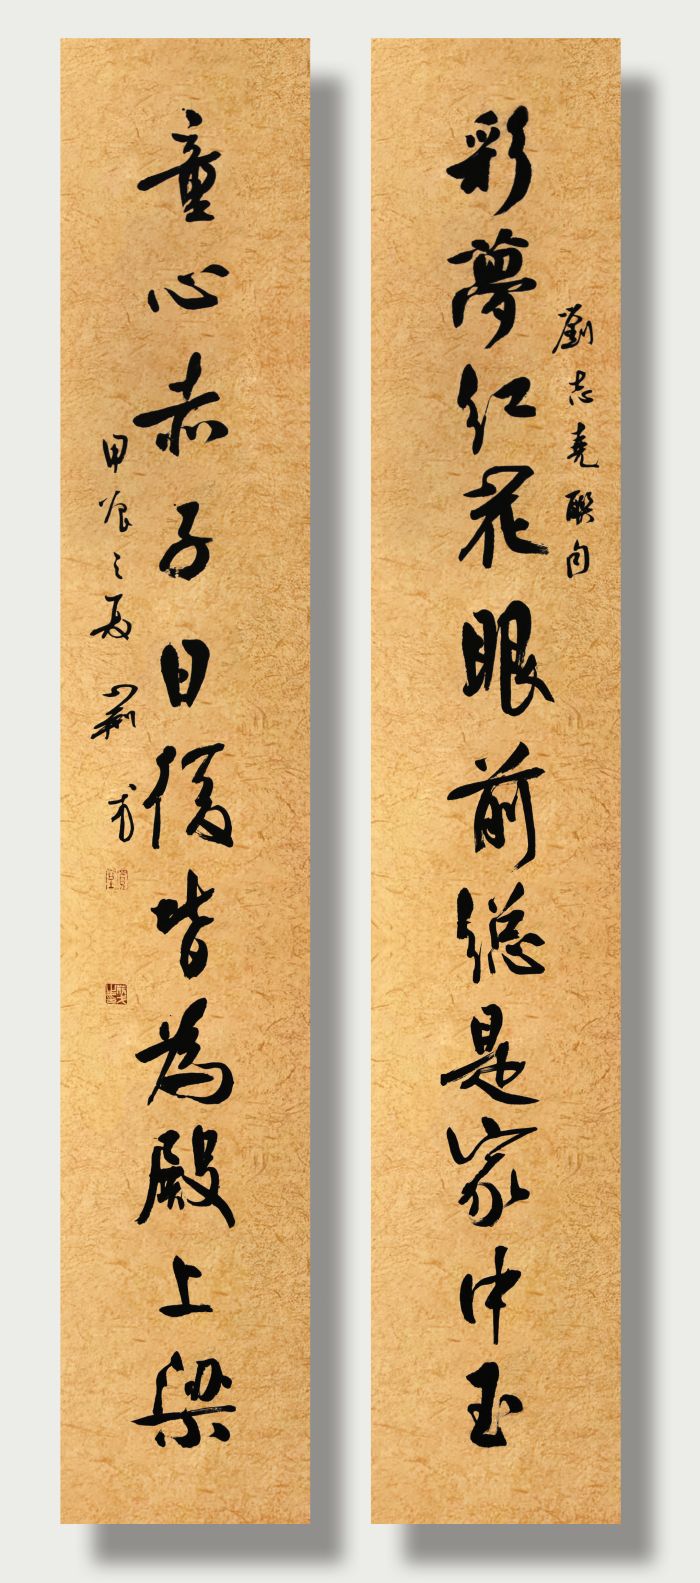 彩夢紅花眼前總是家中玉
劉志堯聯句
童心赤子日後皆為殿上梁
甲辰之夏